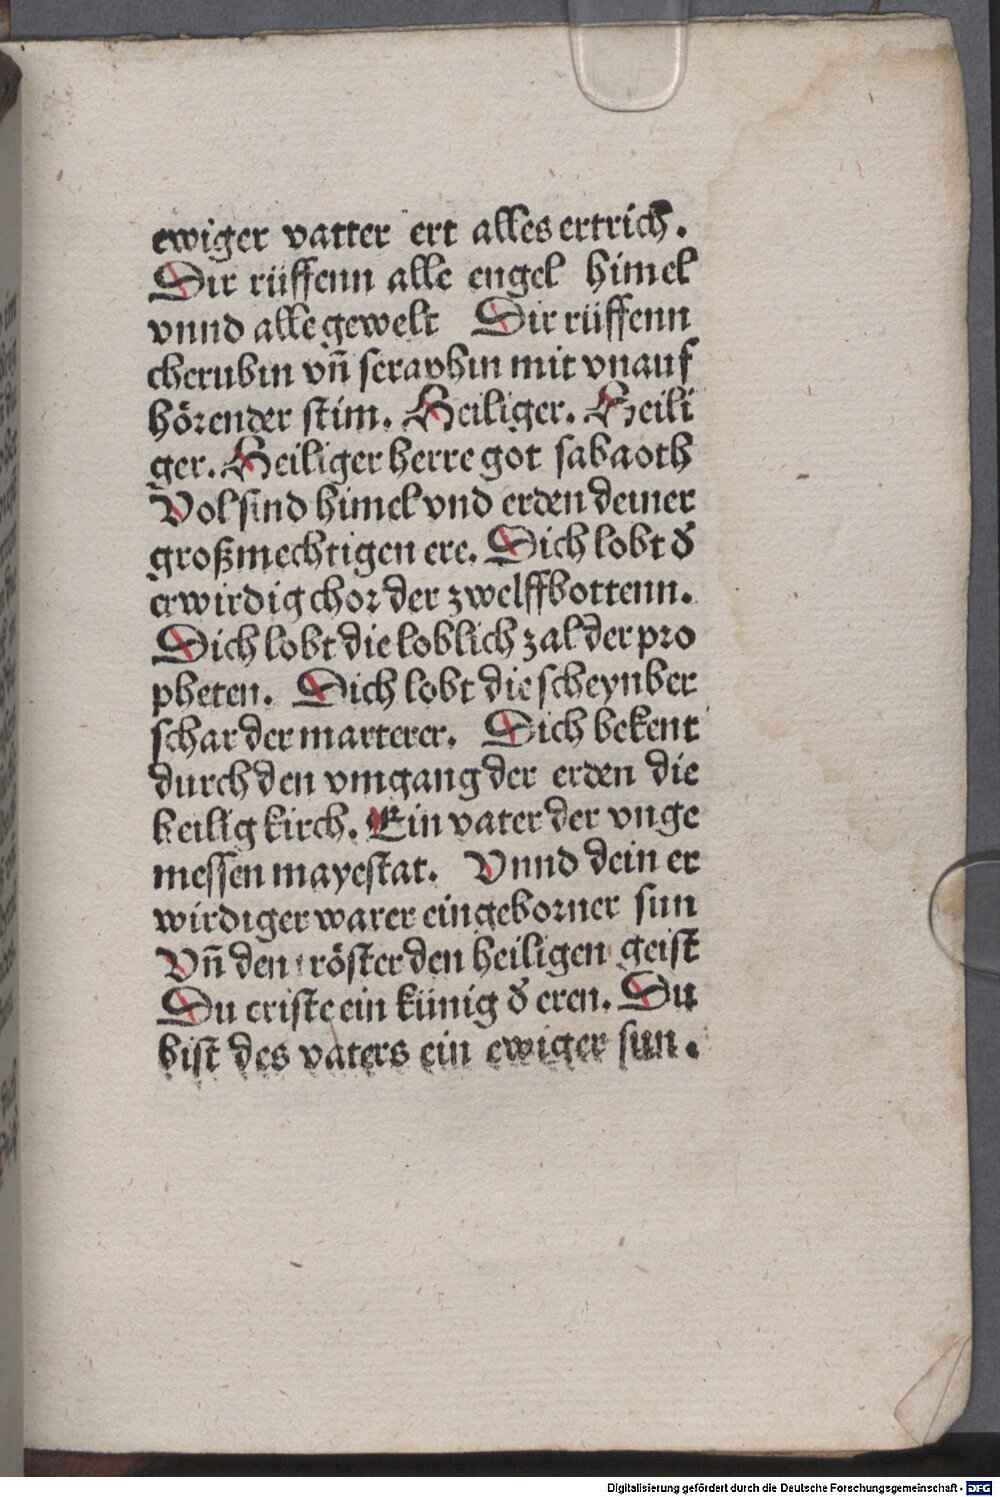 ewiger vatter ert alles ertrich.
Dir rüffenn alle engel himel
vnnd alle gewelt Dir rüffenn
cherubin vn̄ seraphin mit vnauf
hörender stim. Heiliger. Heili
ger. Heiliger herre got sabaoth
Vol sind himel vnd erden deiner
großmechtigen ere. Dich lobt d̕
erwirdig chor der zwelffbottenn.
Dich lobt die loblich zal der pro
pheten. Dich lobt die scheynber
schar der marterer. Dich bekent
durch den vmgang der erden die
heilig kirch. Ein vater der vnge
messen mayestat. Vnnd dein er
wirdiger warer eingeborner sun
Vn̄ den tröster den heiligen geist
Du criste ein künig d̕ eren. Du
bist des vaters ein ewiger sun.
Digitalisierung gefördert durch die Deutsche Forschungsgemeinschaft - DFG